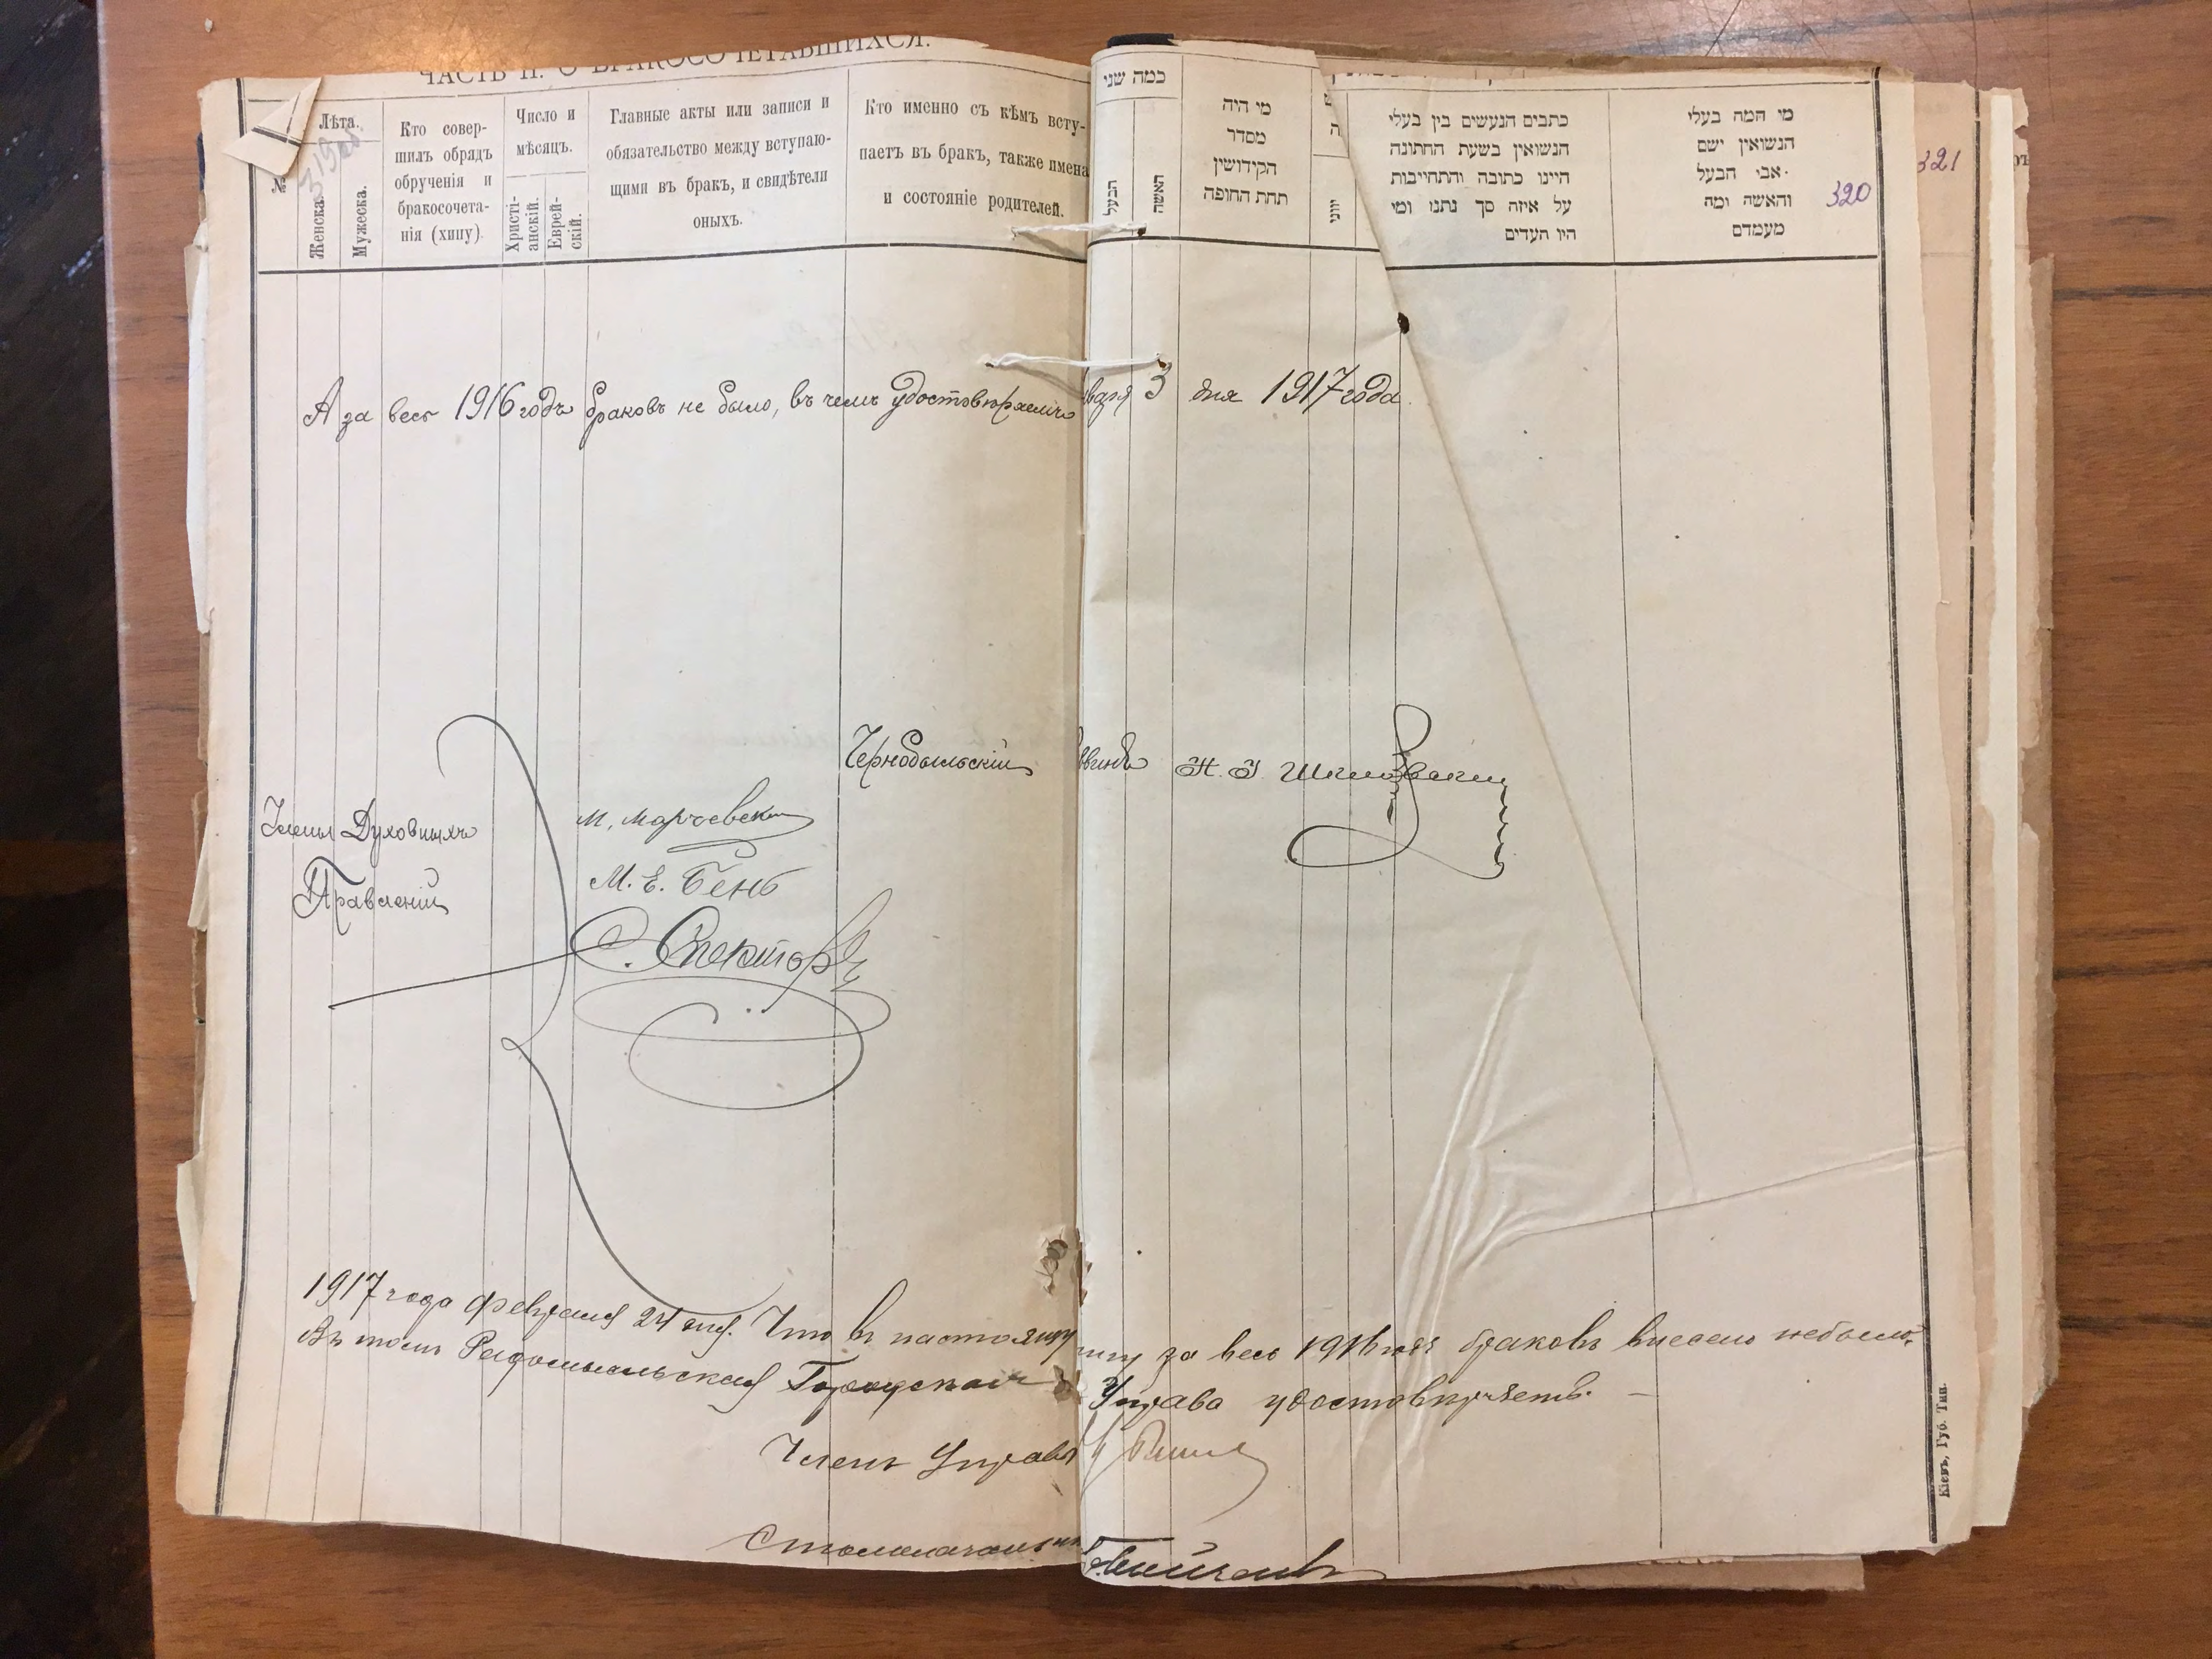 ЧАСТЬ II. О БРАКОСОЧЕТАВШИХСЯ.
№
Лѣта.
Женска.
Мужеска.
Кто совер-
шилъ обрядъ
обрученія и
бракосочета-
нія (хипу).
Число и
мѣсяцъ.
Христі-
анскій.
Еврей-
скій.
Главные акты или записи и
обязательство между вступаю-
щими въ бракъ, и свидѣтели
оныхъ.
Кто именно съ кѣмъ всту-
паетъ въ бракъ, также имена
и состояніе родителей.
כמה שני
הבעל
האשה
מי היה
מסדר
הקידושין
תחת החופה
יווני
כתבים הנעשים בין בעלי
הנשואין בשעת החתונה
היינו כתובה והתחייבות
על איזה סך נתנו ומי
היו העדים
מי המה בעלי
הנשואין ישם
אבי הבעל
והאשה ומה
מעמדם
320
321
А за весь 1916 годъ браковъ не было, въ чемъ удостовѣряемъ
варя 3 дня 1917 года.
Чернобыльскій
ввинъ
Члены Духовныхъ
Правленій
М. Марчевскі
М. Е. Бенб
С. Спекторъ
1917 года февраля 24 дня. Что въ настоящу
нигу за весь 1916 годъ браковъ внесено небыло,
въ томъ Радомысльская Городская
Управа удостовѣряетъ. —
Членъ Управы
Столоначальник
Кіевъ, Губ. Тип.